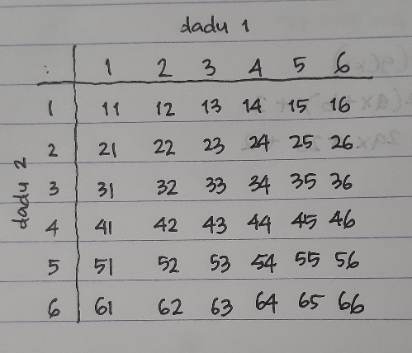 dadu 1
: 1 2 3 4 5 6
1 11 12 13 14 15 16
2 21 22 23 24 25 26
3 31 32 33 34 35 36
4 41 42 43 44 45 46
5 51 52 53 54 55 56
6 61 62 63 64 65 66
dadu 2